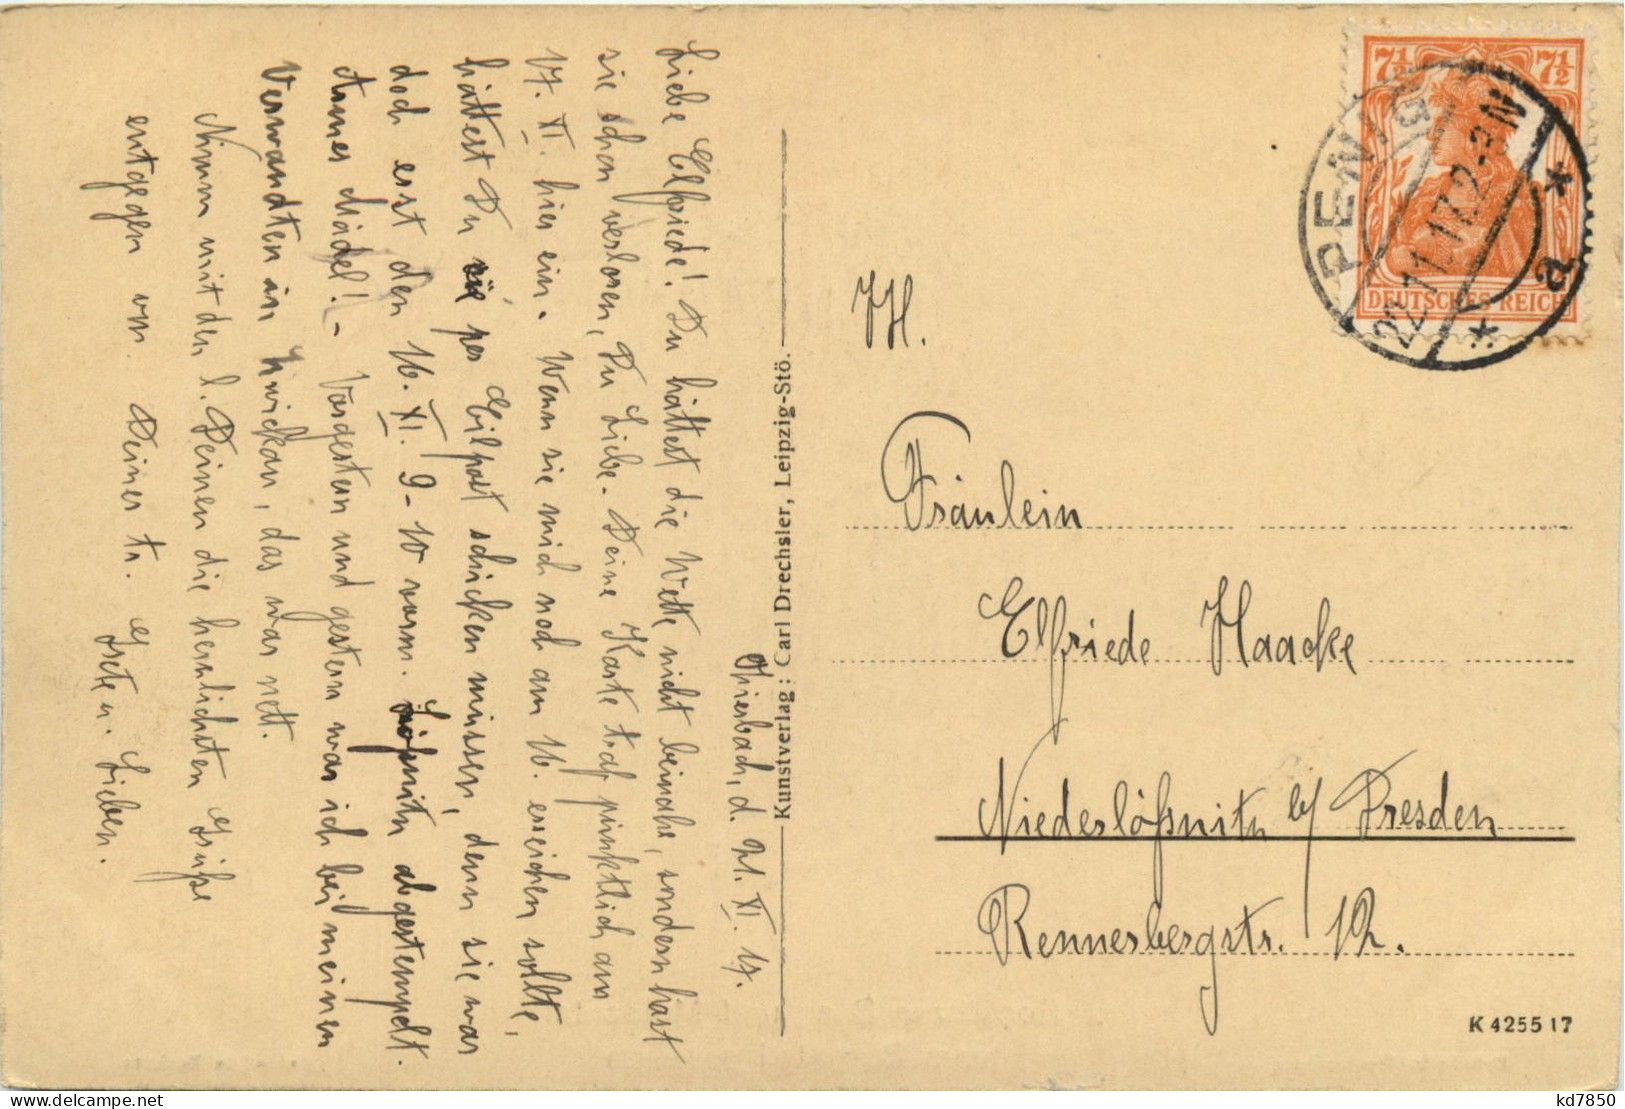 Thierbach, d. 21. XI. 17.
Liebe Elfriede! Du hättest die Wette nicht beinahe, sondern hast
sie schon verloren, Du Liebe. Deine Karte traf pünktlich am
17. XI. hier ein. Wenn sie mich noch am 16. erreichen sollte,
hättest Du sie per Eilpost schicken müssen, denn sie war
doch erst den 16. XI. 9-10 vorm. Lößnitz abgestempelt.
Armes Mädel! - Vorgestern und gestern war ich bei meinen
Verwandten in Zwickau, das war nett.
Nimm mit den l. Deinen die herzlichsten Grüße
entgegen von Deiner tr. Grete u. Lieben.
Kunstverlag: Carl Drechsler, Leipzig-Stö.
7½ 7½
DEUTSCHES REICH
PENIG
22.11.17.2-3N
* a *
H.
Fräulein
Elfriede Haacke
Niederlößnitz b/ Dresden
Rennerbergstr. 12.
K 4255 17
kd7850